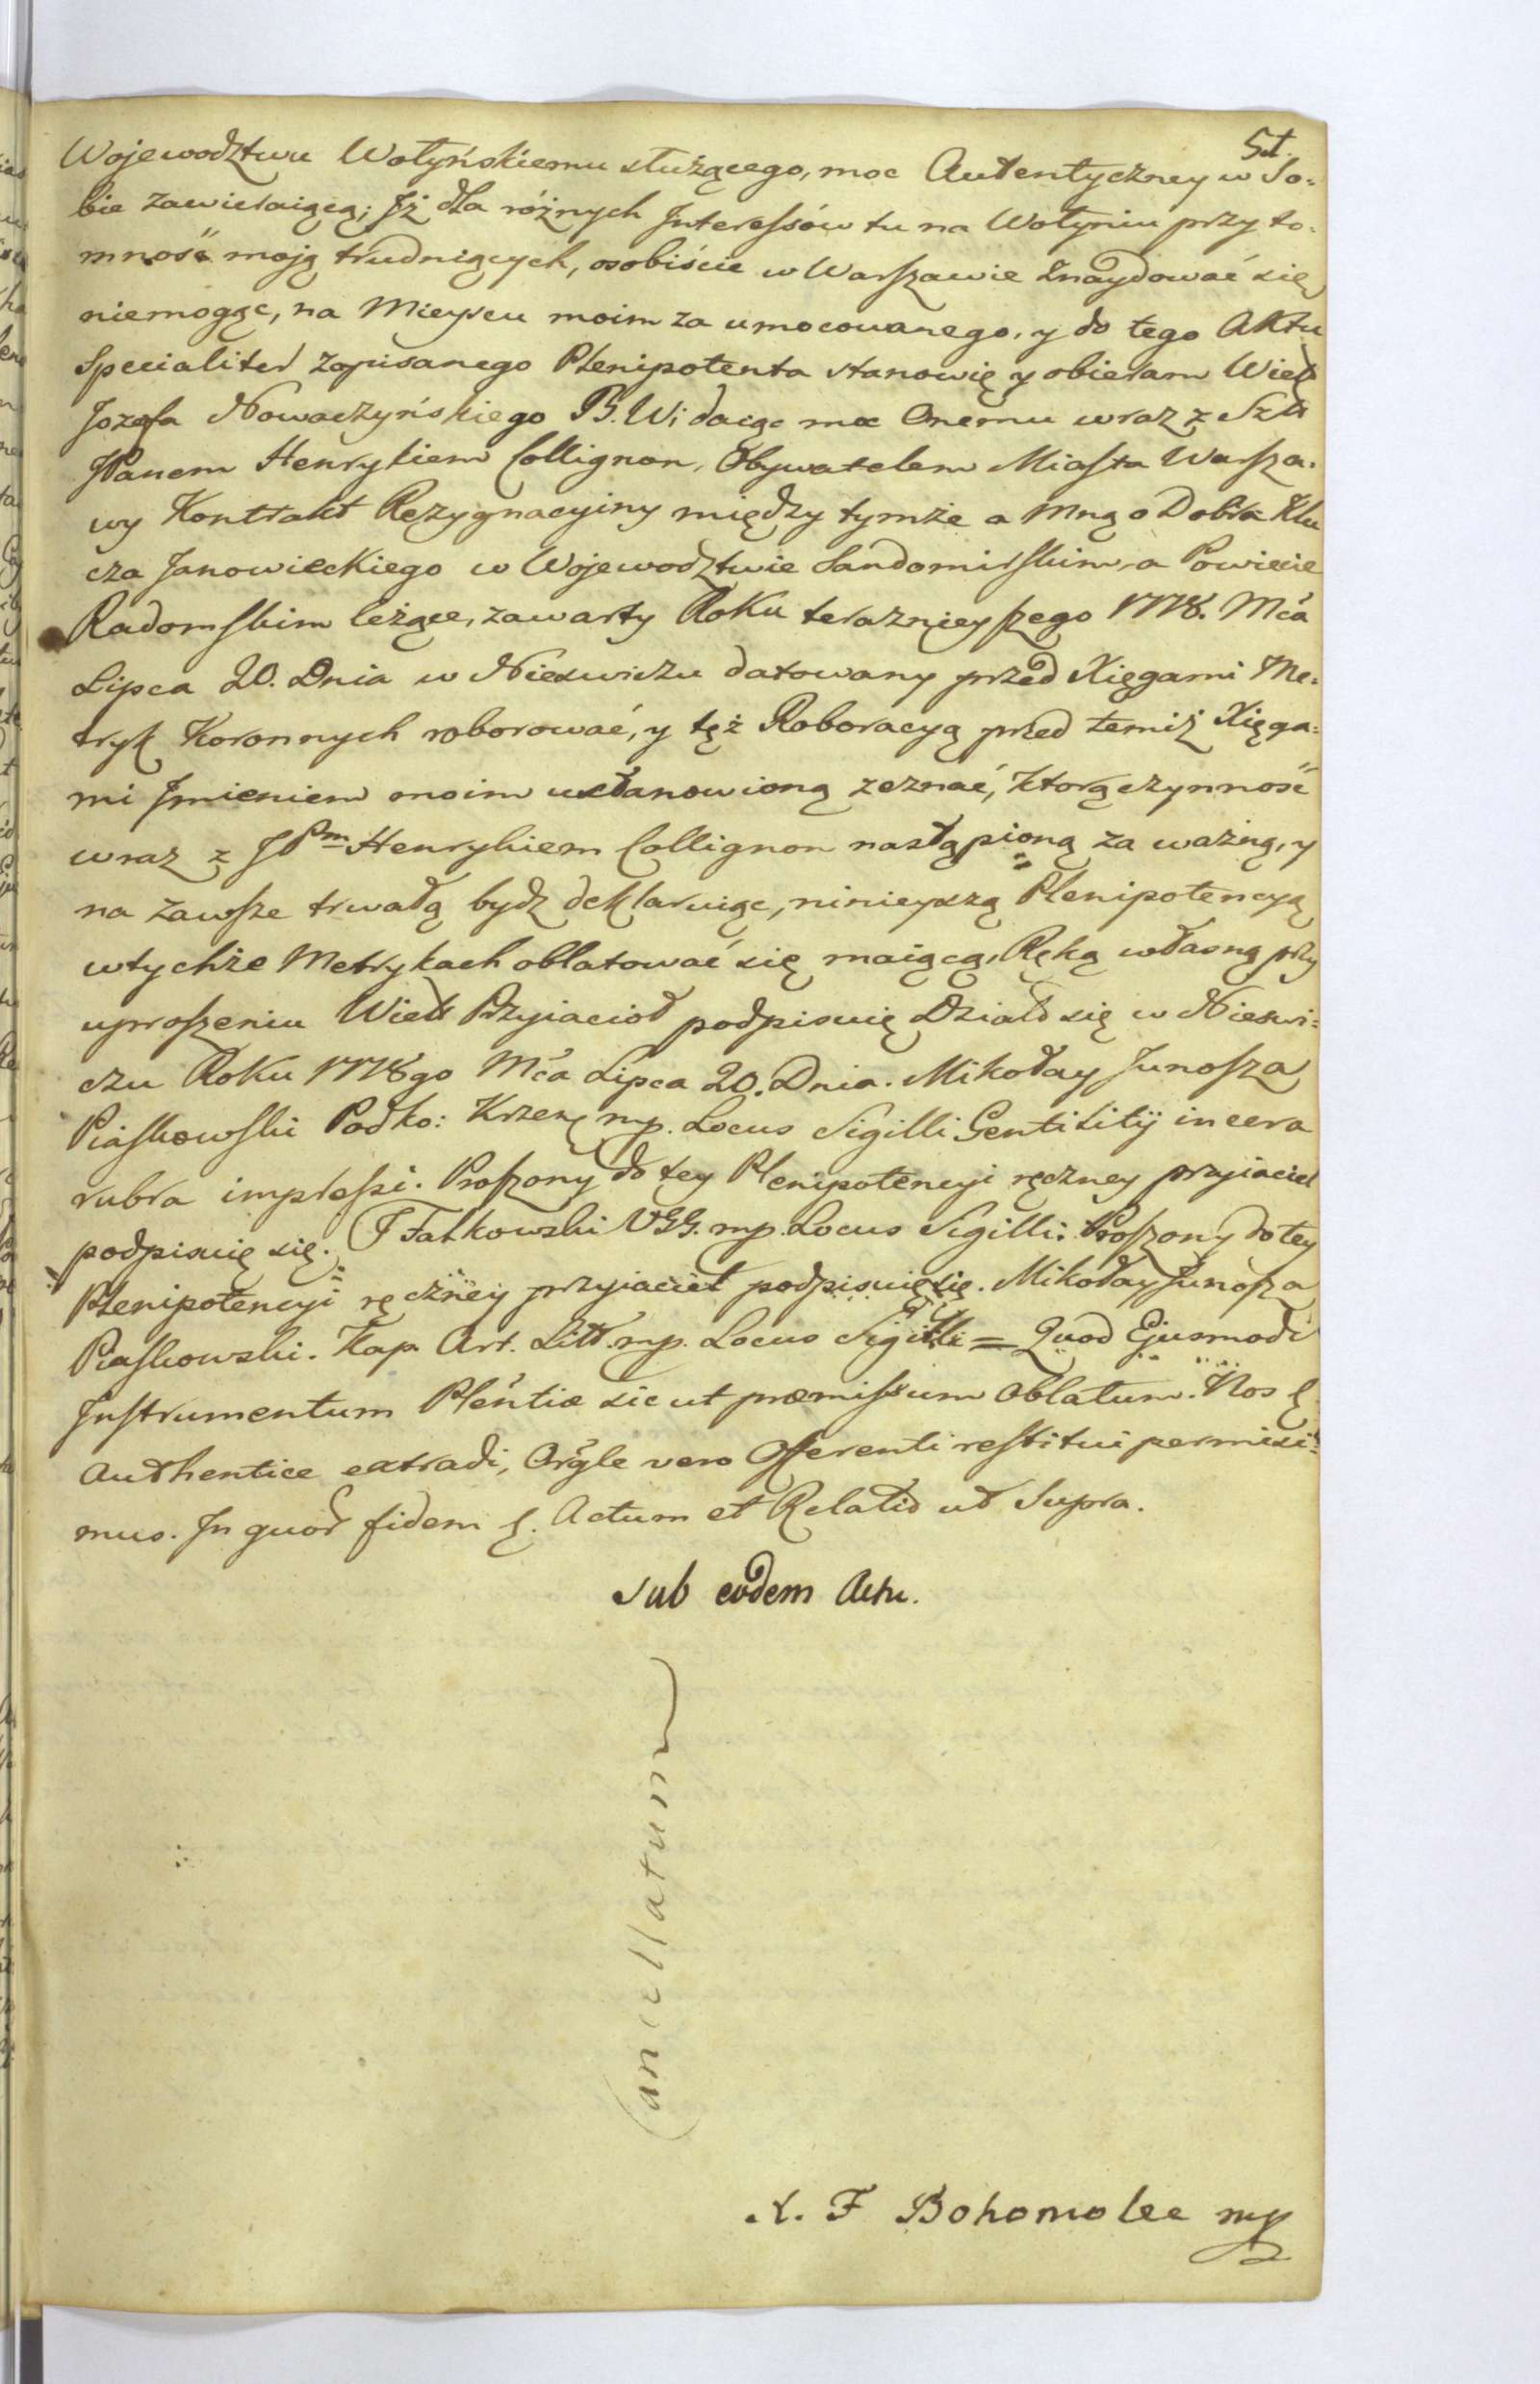 51.
Wojewodztwu Wołyńskiemu służącego, moc Autentyczney w So=
bie zawieraiącą; Jż dla różnych Interessów tu na Wołyniu przyto=
mność moją trudniących, osobiście w Warszawie znaydować się
niemogąc, na Mieyscu moim za umocowanego, y do tego Aktu
Specialiter zapisanego Plenipotenta stanowię y obieram Wielo
Jozefa Nowaczyńskiego B. W; daiąc moc Onemu wraz z Szl:
JPanem Henrykiem Collignon, Obywatelem Miasta Warsza=
wy Kontrakt Rezygnacyiny między tymże a Mną o Dobra Klu
cza Janowieckiego w Wojewodztwie Sandomirskim, a Powiecie
Radomskim leżące, zawarty Roku teraznieyszego 1778. Mca
Lipca 20. Dnia w Nieswiczu datowany przed Xięgami Me=
tryk Koronnych roborować, y też Roboracyą przed temiż Xięga=
mi Jmieniem moim ustanowioną zeznać, Którą czynność
wraz z JPm Henrykiem Collignon nastąpioną za ważną, y
na zawsze trwałą bydz deklaruiąc, ninieyszą Plenipotencyą
w tychże Metrykach oblatować się maiącą, Ręką własną przy
uproszeniu Wielu Przyiacioł podpisuię Działo się w Nieswi=
czu Roku 1778go Mca Lipca 20. Dnia. Mikołay Junosza
Piaskowski Podko: Krzem mp. Locus Sigilli Gentilitij in cera
rubra impressi. Proszony do tey Plenipotencyi ręczney przyiaciel
podpisuię się. J Falkowski VSG. mp. Locus Sigilli: Proszony do tey
Plenipotencyi ręczney przyiaciel podpisuię się. Mikołay Junosza
Piaskowski. Kap. Art. Litt. mp. Locus Sigilli = Quod Ejusmodi
Instrumentum Plentiæ sic ut præmissum Oblatum. Nos &
Authentice extradi, Orgle vero Offerenti restitui permisi=
mus. In quor fidem &. Actum et Relatio ut Supra.
Sub eodem Actu.
Cancellatum
X. F Bohomolec mp